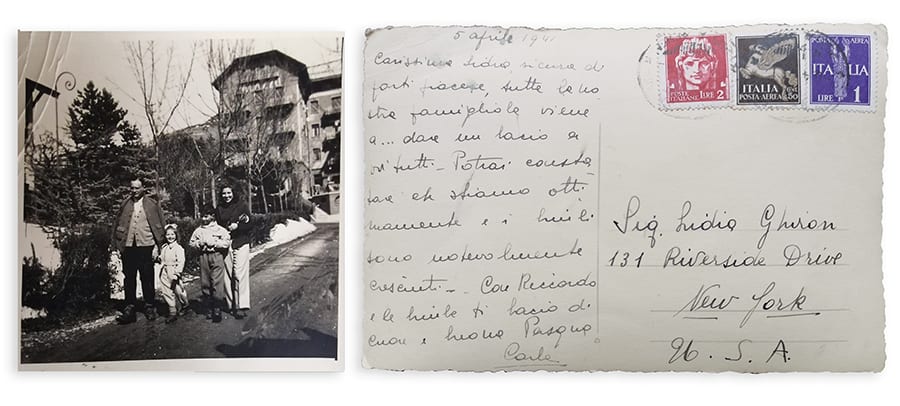 5 aprile 1941
Carissima Lidia, sicura di
farti piacere, tutta la no
stra famigliola viene
a... dare un bacio a
voi tutti - Potrai consta
tare che stiamo otti
mamente e i bimbi
sono notevolmente
cresciuti - Con Riccardo
e le bimbe ti bacio di
cuore e buona Pasqua
Carla
POSTE
ITALIANE
LIRE 2
ITALIA
POSTA AEREA
50
POSTA AEREA
ITALIA
LIRE 1
Sig. Lidia Ghiron
131 Riverside Drive
New York
U. S. A.